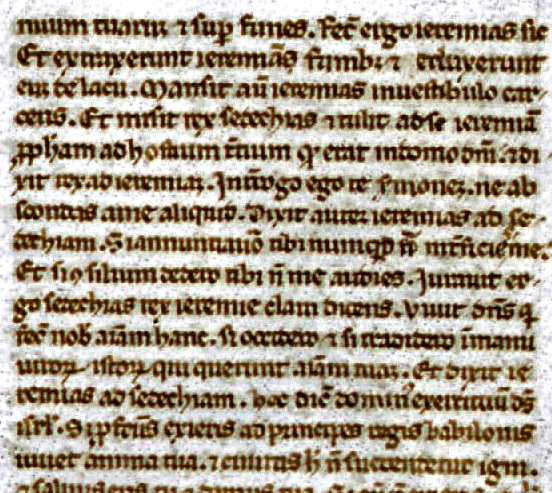 nuum tuarū ⁊ sup funes. Fec̄ ergo ieremias sic
Et extraxerunt ieremiās funib; ⁊ eduxerunt
eū de lacu. Mansit aū ieremias inuestibulo car-
ceris. Et misit rex sedechias ⁊ tulit ad se ieremiā
ꝓpħam ad hostium t̄cium qđ erat in domo dn̄i. ⁊ di
xit rex ad ieremiaꝫ. Int̄rogo ego te s̄monēꝫ. ne ab
scondas a me aliquid. Dixit auteꝫ ieremias ad se-
dechiam. Si annuntiauō tibi numqđ n̄ int̄ficies me.
Et si 9silium dedero tibi n̄ me audies. Jurauit er-
go sedechias rex ieremie clam dicens. Viuit dn̄s q̄
fec̄ nob̄ aīam hanc. si occidero ⁊ si tradidero in manu
uiroꝝ istoꝝ qui querunt aīam tuaꝫ. Et dixit ie
remias ad sedechiam. hec dic̄ dominꝰ exercituū ds̄
isrł. Si ꝓfect̄us exieris ad principes regis babilonis
uiuet anima tua. ⁊ ciuitas h̄ n̄ succendetur igni.